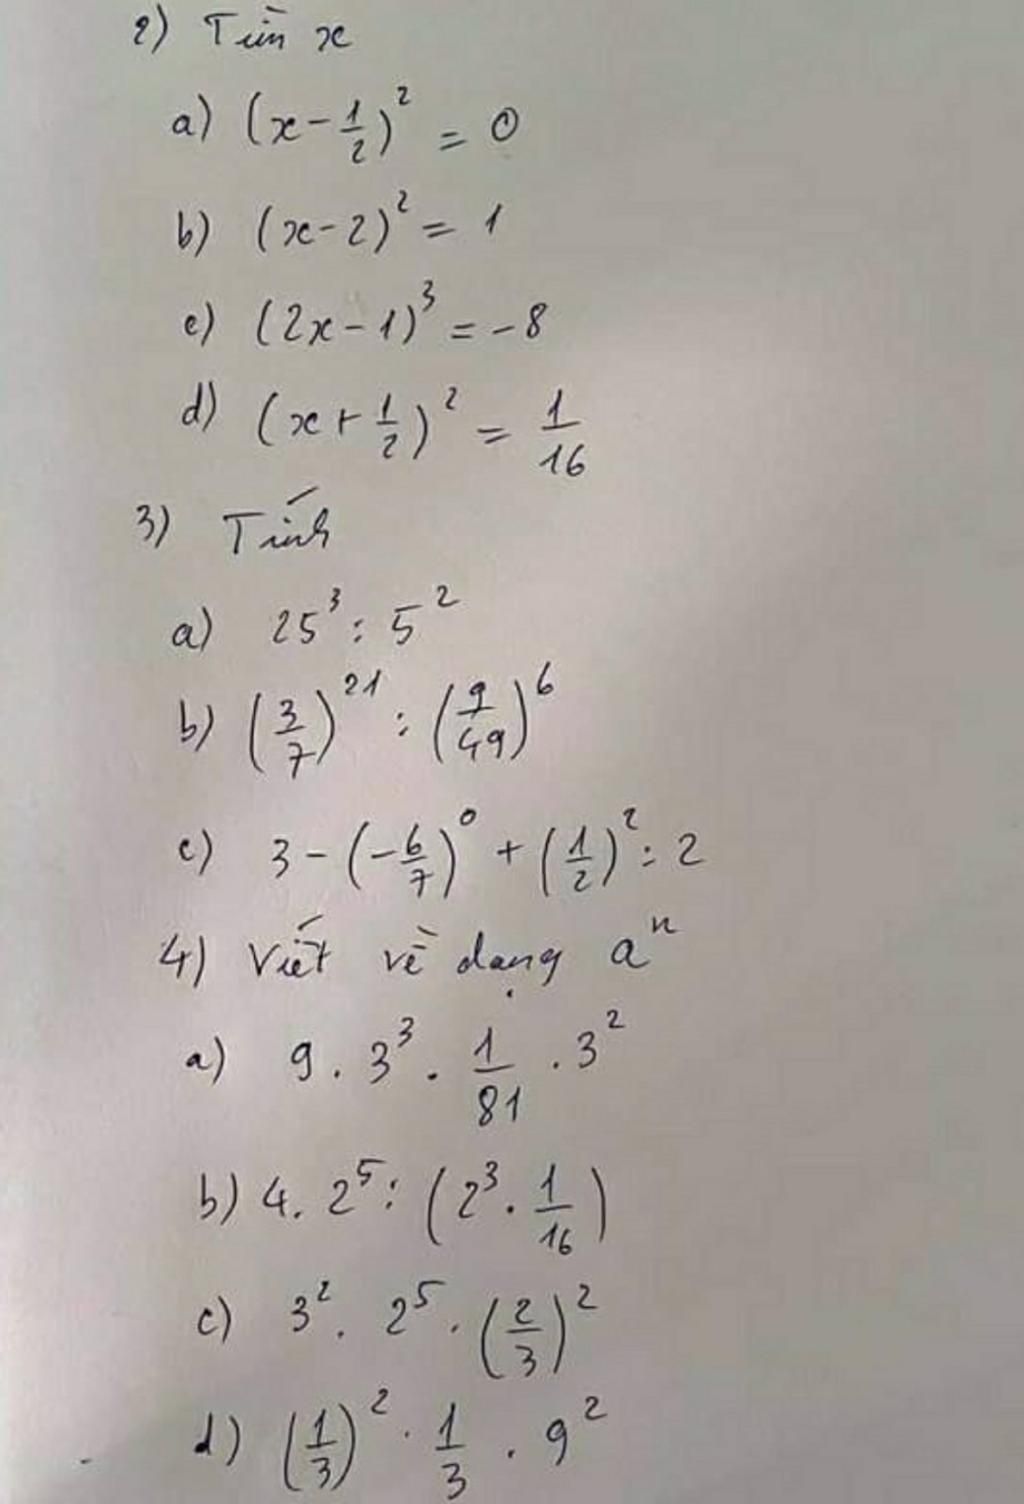 2) Tìm x
a) (x - 1/2)² = 0
b) (x - 2)² = 1
c) (2x - 1)³ = -8
d) (x + 1/2)² = 1/16
3) Tính
a) 25³ : 5²
b) (3/7)²¹ : (9/49)⁶
c) 3 - (-6/7)⁰ + (1/2)² : 2
4) Viết về dạng aⁿ
a) 9 . 3³ . 1/81 . 3²
b) 4 . 2⁵ : (2³ . 1/16)
c) 3² . 2⁵ . (2/3)²
d) (1/3)² . 1/3 . 9²